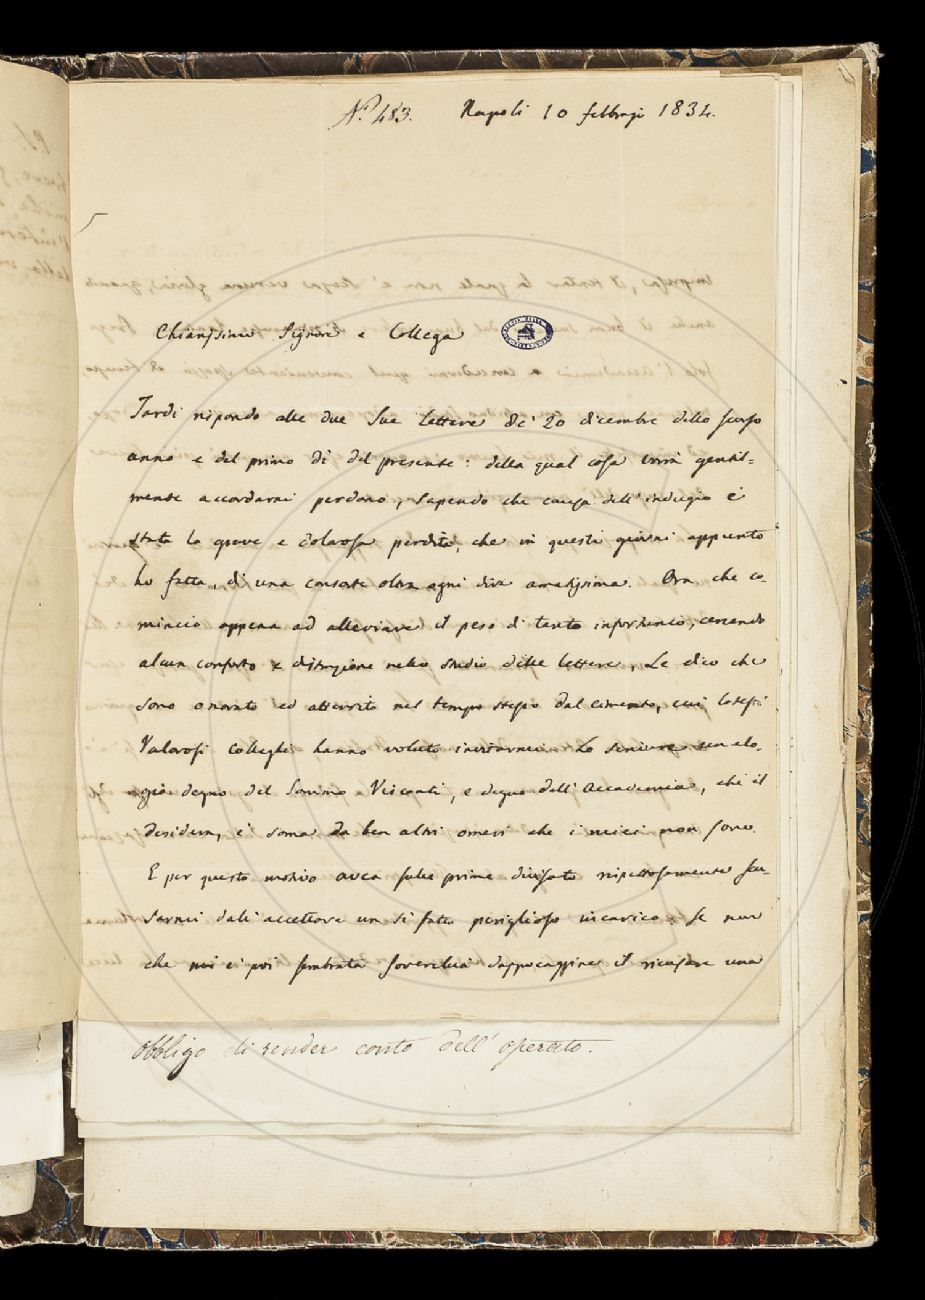 N.° 483. Napoli 10 febbrajo 1834.
Chiarissimo Signore e Collega
Tardi rispondo alle due Sue lettere de' 20 dicembre dello scorso
anno e del primo dì del presente: della qual cosa vorrà gentil=
mente accordarmi perdono, sapendo che causa dell'indugio è
stata la grave e dolorosa perdita, che in questi giorni appunto
ho fatta, di una consorte oltra ogni dire amatissima. Ora che co-
mincio appena ad alleviare il peso di tanto infortunio, cercando
alcun conforto e distrazione nello studio delle lettere, Le dico che
sono onorato ed atterrito nel tempo stesso dal cimento, cui cotesti
Valorosi Colleghi hanno voluto invitarmi. Lo scrivere un elo-
gio degno del Sommo Visconti, e degno dell'Accademia, che il
desidera, è soma da ben altri omeri che i miei non sono.
E per questo motivo avea sulle prime divisato rispettosamente scu-
sarmi dall'accettare un sì fatto periglioso incarico. Se non
che mi è poi sembrata soverchia dappocaggine il ricusare una
obbligo di render conto dell'operato.